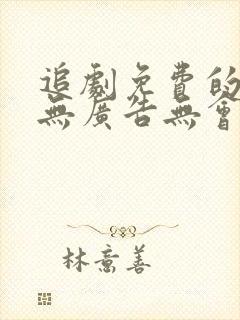 追劇免費的
無廣告無會
林意善